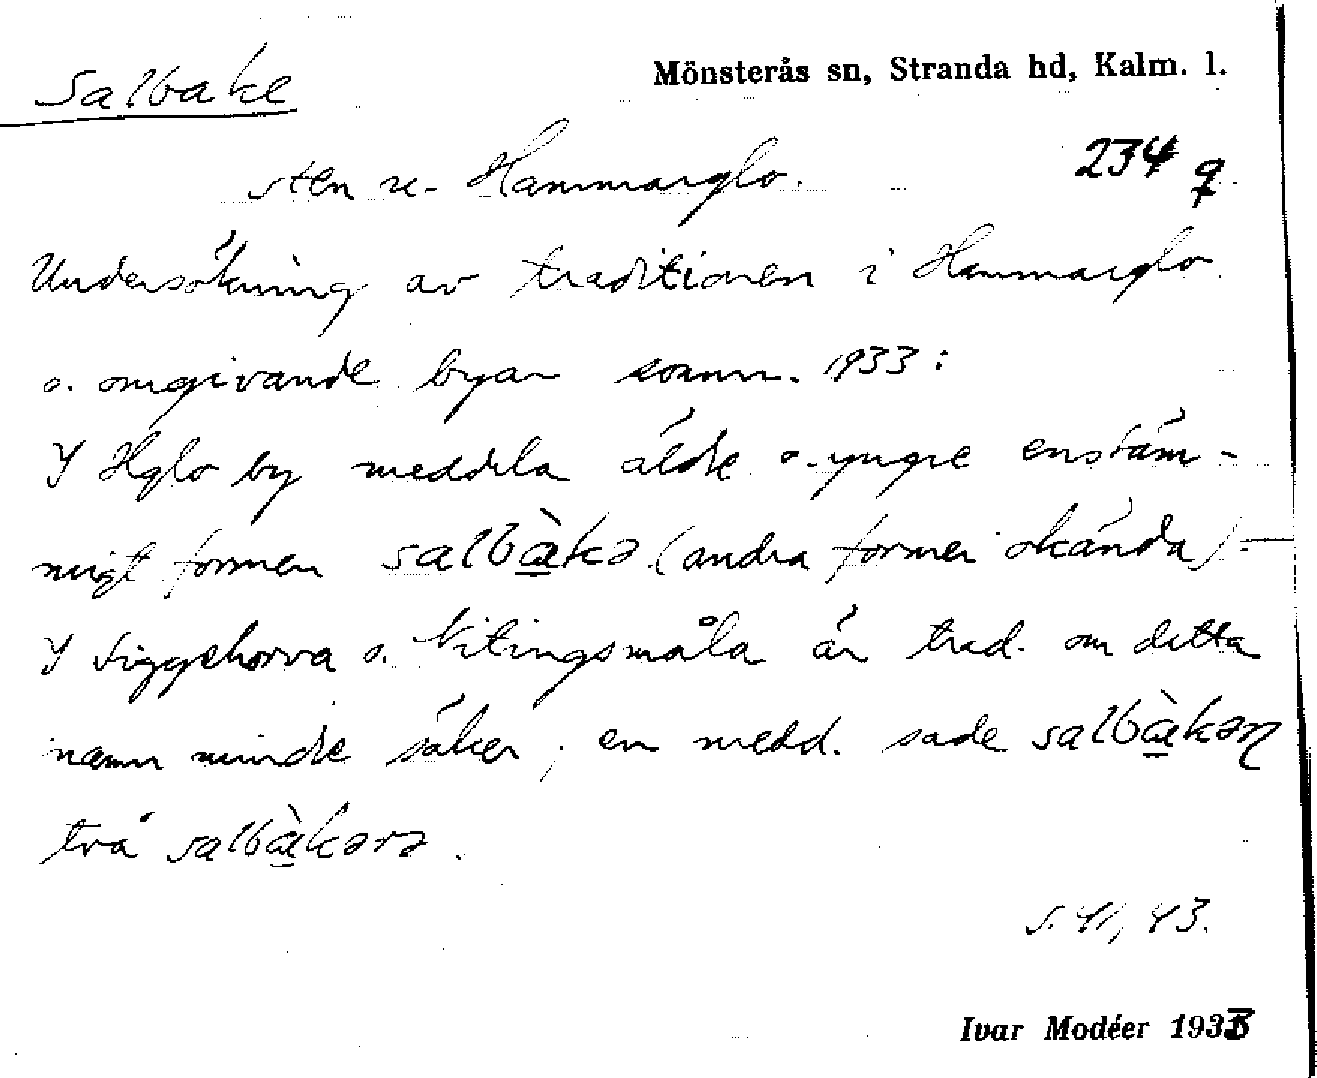 Salbake
Mönsterås sn, Stranda hd, Kalm. l.
sten u. Hammarglo.
234 q
Undersökning av traditionen i Hammarglo
o. omgivande byar somm. 1933:
I Hglo by meddela äldre o. yngre enstäm-
migt formen salbàkə (andra former okända). –
I Siggehorva o. Nitingsmåla är trad. om detta
namn mindre säker; en medd. sade salbàkən
två salbàkərə.
s. 41, 43.
Ivar Modéer 1933